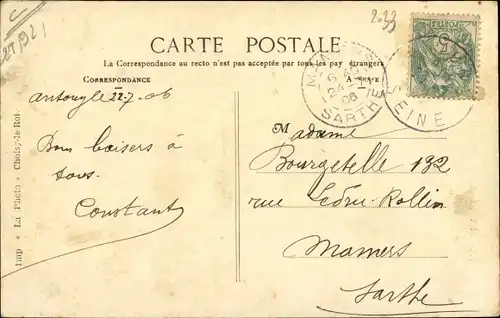 2033
CARTE POSTALE
La Correspondance au recto n'est pas acceptée par tous les pay étrangers
CORRESPONDANCE
MAMERS
24
06
SARTHE
SEINE
POSTES
5
22-7-06
Bons baisers à
tous.
Constant
Madame
Bourgetelle 192
rue Ledru-Rollin
Mamers
Sarthe
Imp « La Photo » Choisy-le-Roi.